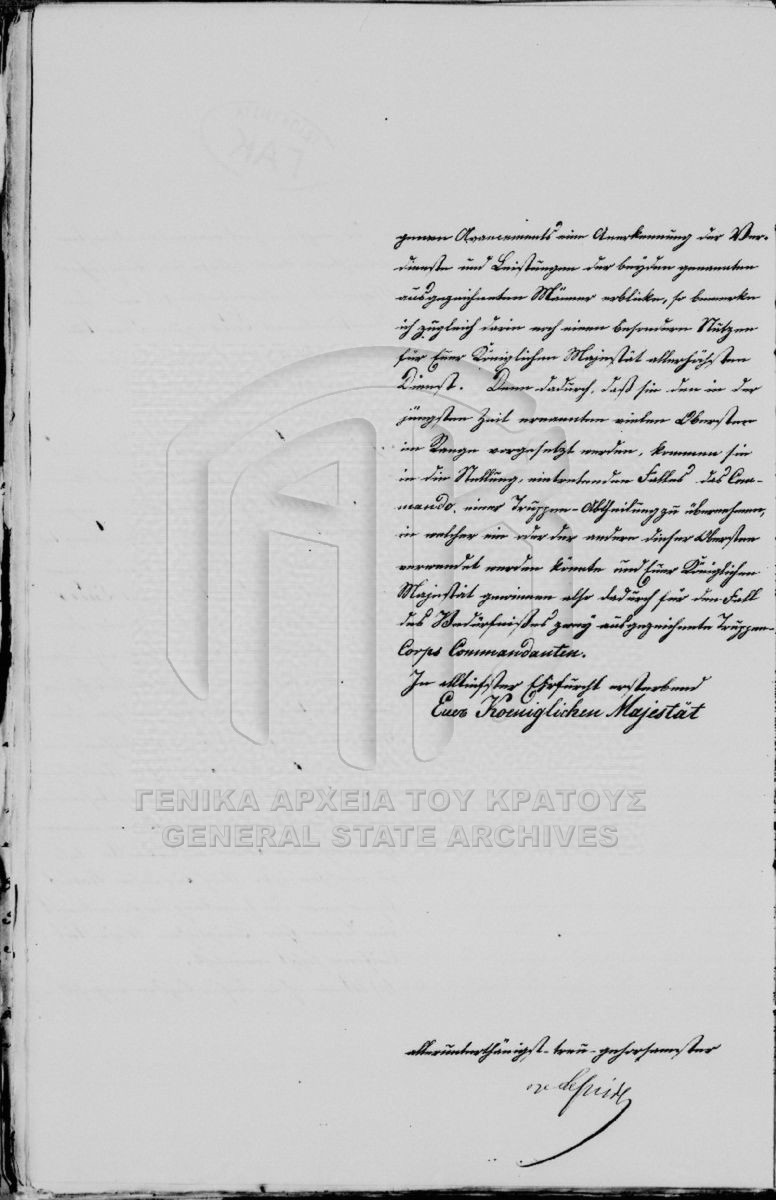 genen Avancements eine Anerkennung der Ver-
dienste und Leistungen der beyden genannten
ausgezeichneten Männer erblicke, so bemerke
ich zugleich darin noch einen besondern Nutzen
für Euer Königlichen Majestät allerhöchsten
Dienst. Denn dadurch, daß sie den in der
jüngsten Zeit ernannten vielen Obersten
im Range vorgesetzt werden, kommen sie
in die Stellung, eintretenden Falles das Com-
mando einer Truppen-Abtheilung zu übernehmen,
in welcher ein oder der andere dieser Obersten
verwendet werden könnte und Euer Königlichen
Majestät gewinnen also dadurch für den Fall
des Bedürfnißes zwey ausgezeichnete Truppen-
Corps Commandanten.
In alltiefster Ehrfurcht ersterbend
Euer Koeniglichen Majestät
allerunterthänigst-treu-gehorsamster
ΓΑΚ
ΓΕΝΙΚΑ ΑΡΧΕΙΑ ΤΟΥ ΚΡΑΤΟΥΣ
GENERAL STATE ARCHIVES